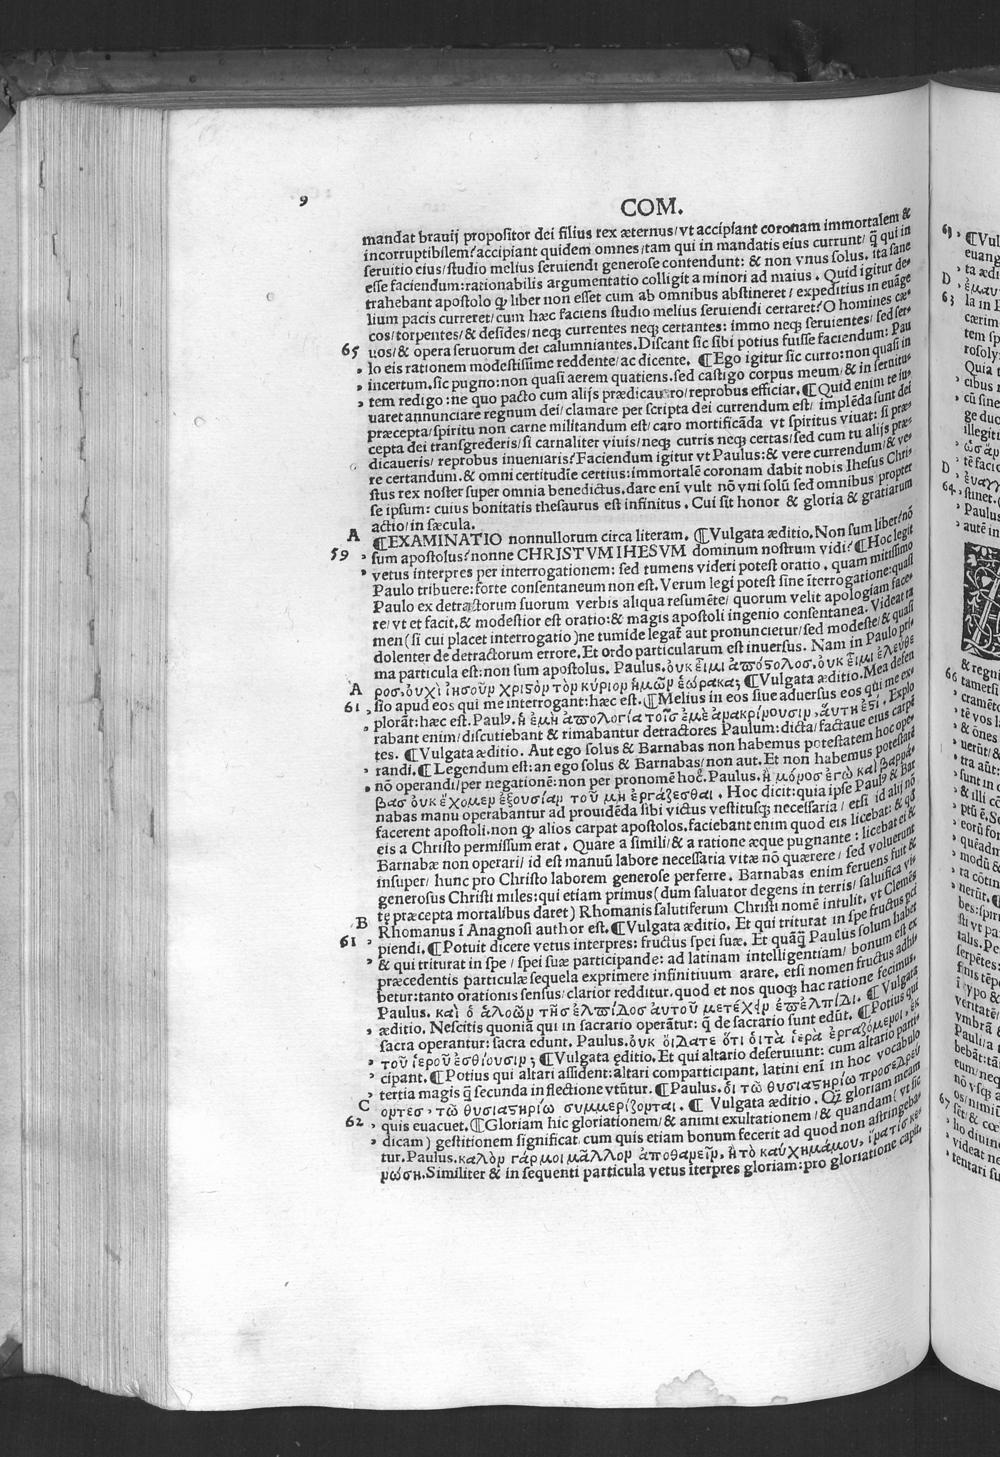 9
COM.
mandat brauij propositor dei filius rex æternus/vt accipiant coronam immortalem &
incorruptibilem? accipiant quidem omnes/tam qui in mandatis eius currunt/ q̃ qui in
seruitio eius/studio melius seruiendi generose contendunt: & non vnus solus. ita sane
esse faciendum: rationabilis argumentatio colligit a minori ad maius. Quid igitur de⸗
trahebant apostolo ꝙ liber non esset cum ab omnibus abstineret/expeditius in euãge
lium pacis curreret/cum hæc faciens studio melius seruiendi certaret? O homines cæ⸗
cos/torpentes/& desides/neqꝫ currentes neqꝫ certantes: immo neqꝫ seruientes/sed ser⸗
65 uos/& opera seruorum dei calumniantes. Discant sic sibi potius fuisse faciendum: Pau
, lo eis rationem modestissime reddente/ac dicente. ¶Ego igitur sic curro: non quasi in
, incertum. sic pugno: non quasi aerem quatiens. sed castigo corpus meum/& in seruitu⸗
, tem redigo: ne quo pacto cum alijs prædicauero/reprobus efficiar. ¶Quid enim te iu⸗
uaret annunciare regnum dei/clamare per scripta dei currendum est/ implẽda sunt dei
præcepta/spiritu non carne militandum est/caro mortificãda vt spiritus viuat: si præ⸗
cepta dei transgrederis/si carnaliter viuis/neqꝫ curris neqꝫ certas/sed cum tu alijs præ⸗
dicaueris/ reprobus inueniaris? Faciendum igitur vt Paulus: & vere currendum/& ve⸗
re certandum. & omni certitudĩe certius: immortalẽ coronam dabit nobis Ihesus Chri⸗
stus rex noster super omnia benedictus. dare enĩ vult nõ vni solũ sed omnibus propter
se ipsum: cuius bonitatis thesaurus est infinitus. Cui sit honor & gloria & gratiarum
actio/in sæcula.
A ¶EXAMINATIO nonnullorum circa literam. ¶Vulgata æditio. Non sum liber? nõ
59 , sum apostolus? nonne CHRISTVM IHESVM dominum nostrum vidi? ¶Hoc legit
, vetus interpres per interrogationem: sed tumens videri potest oratio. quam mitissimo
Paulo tribuere: forte consentaneum non est. Verum legi potest sine ĩterrogatione: quasi
Paulo ex detractorum suorum verbis aliqua resumẽte/ quorum velit apologiam face⸗
re/vt et facit. & modestior est oratio: & magis apostoli ingenio consentanea. Videat ta
men (si cui placet interrogatio) ne tumide legat̃ aut pronuncietur/sed modeste/& quasi
dolenter de detractorum errore. Et ordo particularum est inuersus. Nam in Paulo pri⸗
ma particula est: non sum apostolus. Paulus. ὀυκ ἐιμι ἀπόςολος. ὀυκ ἐιμι ἐλεύθε
A ρος. ὀυχὶ ἰησοῦν χριςὸν τὸν κύριον ἡμῶν ἑώρακα; ¶Vulgata æditio. Mea defen
61 , sio apud eos qui me interrogant: hæc est. ¶Melius in eos siue aduersus eos qui me ex⸗
, plorãt: hæc est. Paulꝰ. ἡ ἐμὴ ἀπολογία τοῖς ἐμὲ ἀνακρίνουσιν, ἅυτη ἐςί. Explo
rabant enim/discutiebant & rimabantur detractores Paulum: dicta/factaue eius carpẽ
tes. ¶Vulgata æditio. Aut ego solus & Barnabas non habemus potestatem hoc ope⸗
, randi. ¶Legendum est: an ego solus & Barnabas/non aut. Et non habemus potestatẽ
, nõ operandi/per negationẽ: non per pronomẽ hoc. Paulus. ἢ μόνος ἐγὼ καὶ βαρνά⸗
βας ὀυκ ἔχομεν ἐξουσίαν τοῦ μὴ ἐργάζεσθαι. Hoc dicit: quia ipse Paulꝰ & Bar
nabas manu operabantur ad prouidẽda sibi victus vestitusqꝫ necessaria/ etsi id alij nõ
facerent apostoli. non ꝙ alios carpat apostolos. faciebant enim quod eis licebat: & qđ
eis a Christo permissum erat. Quare a simili/& a ratione æque pugnante: licebat ei &
Barnabæ non operari/ id est manuũ labore necessaria vitæ nõ quærere/ sed voluerunt
insuper/ hunc pro Christo laborem generose perferre. Barnabas enim feruens fuit &
generosus Christi miles: qui etiam primus (dum saluator degens in terris/ salutifica vi⸗
tę præcepta mortalibus daret) Rhomanis salutiferum Christi nomẽ intulit. vt Clemẽs
B Rhomanus ĩ Anagnosi author est. ¶Vulgata æditio. Et qui triturat in spe fructus pci
61 , piendi. ¶Potuit dicere vetus interpres: fructus spei suæ. Et quãq̃ Paulus solum habet
, & qui triturat in spe/ spei suæ participande: ad latinam intelligentiam/ bonum est ex
præcedentis particulæ sequela exprimere infinitiuum arare. etsi nomen fructus adhi⸗
betur: tanto orationis sensus/ clarior redditur. quod et nos quoqꝫ hac ratione fecimus.
Paulus. καὶ ὁ ἀλοῶν τῆς ἐλπίδος ἀυτοῦ μετέχειν ἐπ᾽ἐλπίδι. ¶Vulgata
, æditio. Nescitis quoniã qui in sacrario operãtur: q̃ de sacrario sunt edũt. ¶Potius qui
sacra operantur: sacra edunt. Paulus. ὀυκ ὄιδατε ὅτι ὁιτὰ ἱερὰ ἐργαζόμενοι, ἐκ
, τοῦ ἱεροῦ ἐσθίουσιν; ¶Vulgata ęditio. Et qui altario deseruiunt: cum altario parti⸗
, cipant. ¶Potius qui altari assident: altari comparticipant. latini enĩ in hoc vocabulo
, tertia magis q̃ secunda inflectione vtũtur. ¶Paulus. ὁι τῶ θυσιαςηρίω προσεδρεύ
C οντες, τῶ θυσιαςηρίω συμμερίζονται. ¶ Vulgata æditio. Qꝫ gloriam meam
62 , quis euacuet. ¶Gloriam hic gloriationem/& animi exultationem/& quandam (vt sic
, dicam) gestitionem significat. cum quis etiam bonum fecerit ad quod non astringeba⸗
tur. Paulus. καλὸν γάρ μοι μᾶλλον ἀποθανεῖν, ἢ τὸ καύχημάμου, ἵνα τὶς κε⸗
νώση. Similiter & in sequenti particula vetus ĩterpres gloriam: pro gloriatione capit.